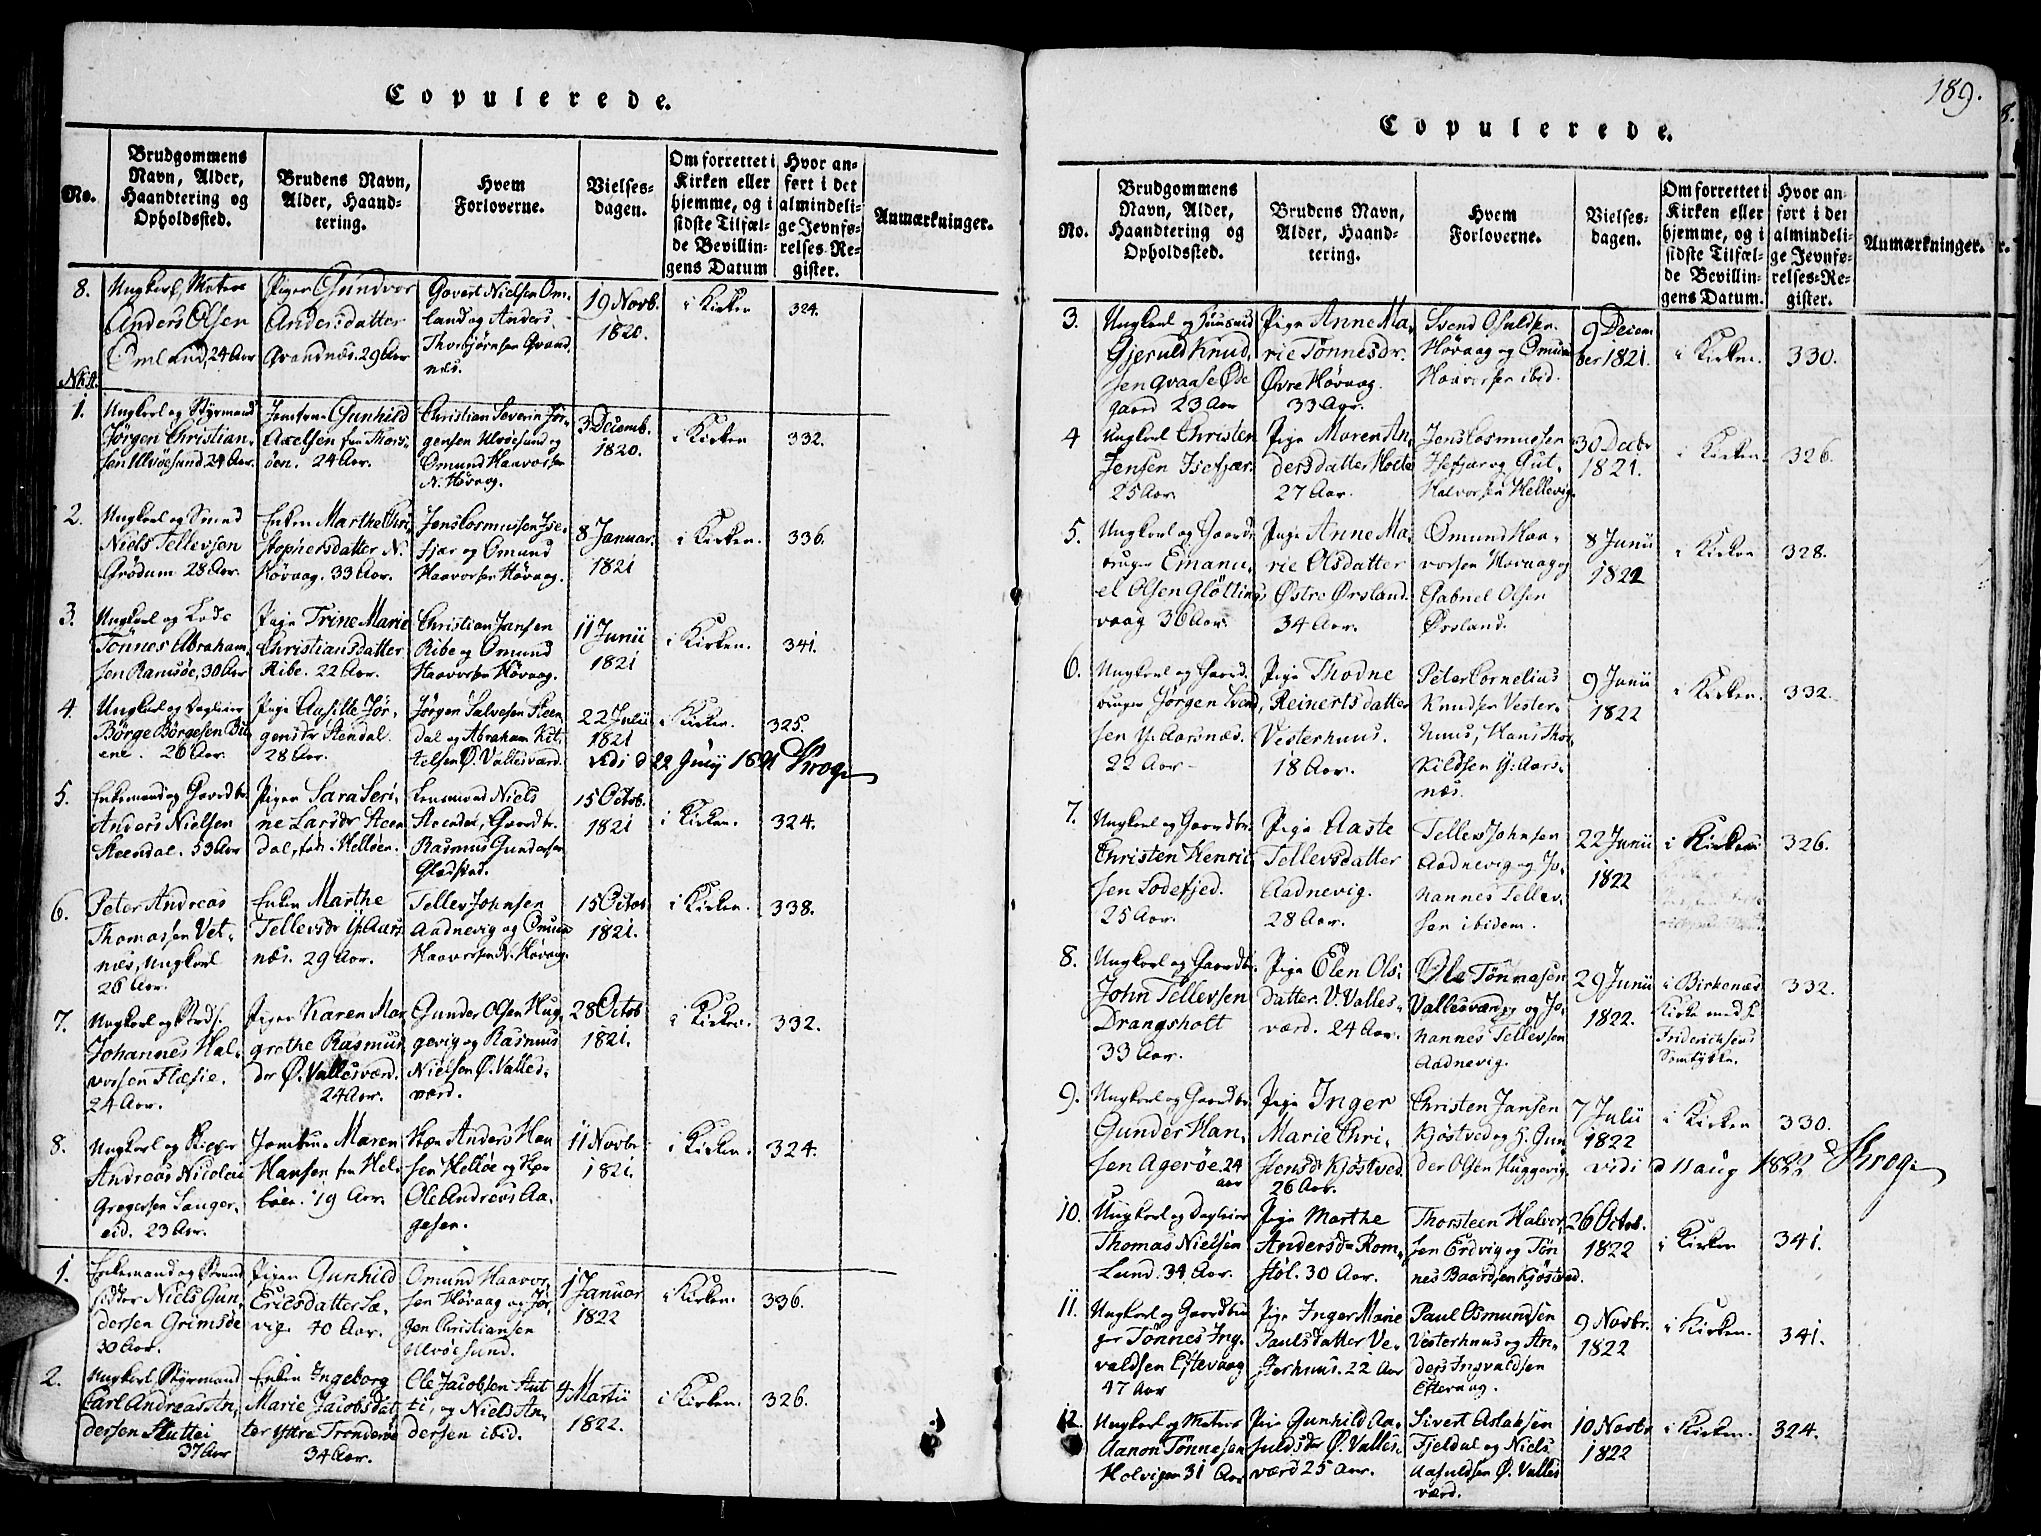 Copulerede.
No.
Brudgommens
Navn, Alder,
Haandtering og
Opholdssted.
Brudens Navn,
Alder, Haand-
tering.
Hvem
Forloverne.
Vielses-
dagen.
Om forrettet i
Kirken eller
hjemme, og i
sidste Tilfæl-
de Bevillin-
gens Datum
Hvor an-
ført i det
almindeli-
ge Jevnfø-
relses-Re-
gister.
Anmærkninger.
8.
Ungkarl, Matros
Anders Olsen
Omland, 24 Aar
Pigen Gundvor
Andersdatter
Qvandnæs. 29 Aar
Govert Nielsen Om-
land og Anders
Thorbjørnsen Qvand-
næs.
19 Novb.
1820.
i Kirken
324.
1.
Ungkarl og Styrmand
Jørgen Christian-
sen Ulvøesund 24 Aar.
Jomfrue Gunhild
Axelsen fra Thors-
öen. 24 Aar.
Christian Severin Jør-
gensen Ulvöesund og
Omund Haavorsen
N. Høvaag.
3 Decemb.
1820.
i Kirken
332.
2.
Ungkarl og Smed
Niels Tellevsen
Grödum 28 Aar.
Enken Marthe Chri-
stophersdatter N.
Høvaag. 33 Aar.
Jens Cosmussen Ise-
fjær og Omund
Haavorsen Høvaag.
8 Januar.
1821
i Kirken.
336.
3.
Ungkarl og Lods
Tönnes Abraham-
sen Ramsöe, 30 Aar
Pige Trine Marie
Christiansdatter
Ribe. 22 Aar.
Christian Jansen
Ribe og Omund
Haavorsen Høvaag.
11 Junii
1821
i Kirken.
341.
4.
Ungkarl og Dagleier
Börge Börgesen Bu-
ene. 26 Aar.
Pige Aasille Jør-
gensdr Stendal.
28 Aar.
Jørgen Salvesen Steen-
dal og Abraham Kit-
telsen Ø. Vallesværd.
22 Julii
1821
i Kirken.
325.
vidi d 22 July 1821 Krog
5.
Enkemand og Gaardbr.
Anders Nielsen
Steendal. 53 Aar
Pigen Sara Seri-
ne Larsdr Steen
dal, født i Helleen.
Lensmand Niels
Steendal, Gaardbr.
Rasmus Gundersen
Gladstad.
15 Octob.
1821
i Kirken.
324.
6.
Peter Andreas
Thomassen Vet-
næs, Ungkarl
26 Aar.
Enken Marthe
Tellevsdr Y. Aars-
næs. 29 Aar.
Tellev Johnsen
Aadnevig og Omun
Haavorsen N. Høvaag.
15 Octob
1821.
i Kirken.
338.
7.
Ungkarl og
Johannes Hal-
vorsen Flæsie.
24 Aar.
Pigen Karen Mar
grethe Rasmus
dr Ø. Vallesværd.
24 Aar.
Gunder Olsen Hug-
gevig og Rasmus
Nielsen Ø. Valles-
værd.
28 Octob
1821.
i Kirken.
332.
8.
Ungkarl og
Andreas Nicolai
Gregersen Sanger-
eid. 23 Aar.
Jomfrue Maren
Hansen fra Hel-
löen. 19 Aar.
Anders Han
sen Hellöe og
Ole Andreas Aa-
gesen.
11 Novbr
1821.
i Kirken.
324.
1.
Enkemand og Strand
sidder Niels Gun-
dersen Grimsöe
30 Aar.
Pigen Gunhild
Erilsdatter Sæ-
vig. 40 Aar.
Omund Haavor-
sen Høvaag og Jør-
gen Christiansen
Ulvöesund.
1 Januar
1822
i Kirken.
336.
2.
Ungkarl Styrmand
Carl Andreas An-
dersen Skuttei
37 Aar
Enken Ingeborg
Marie Jacobsdat-
ter Yttre Trøndevi
34 Aar.
Ole Jacobsen Skut
ti, og Niels An-
dersen ibid.
4 Martii
1822.
i Kirken.
326.
189.
Copulerede.
No.
Brudgommens
Navn, Alder,
Haandtering og
Opholdssted.
Brudens Navn,
Alder, Haand-
tering.
Hvem
Forloverne.
Vielses-
dagen.
Om forrettet i
Kirken eller
hjemme, og i
sidste Tilfæl-
de Bevillin-
gens Datum.
Hvor an-
ført i det
almindeli-
ge Jevnfø-
relses-Re-
gister.
Anmærkninger.
3.
Ungkarl og Huusmd
Gjeruld Knud-
sen Qvaase Øde
gaard 23 Aar
Pige Anne Ma-
rie Tönnesdr.
Øvre Høvaag.
33 Aar.
Svend Osuldsen
Høvaag og Omun
Haavorsen ibid.
9 Decem
ber 1821.
i Kirken.
330.
4
Ungkarl Christen
Jensen Isefjær.
25 Aar.
Pige Maren An-
dersdatter Holte
27 Aar.
Jens Cosmussen
Isefjær og Gut-
Halvorsen Hellevig.
30 Decbr
1821.
i Kirken.
326.
5.
Ungkarl og Gaard-
bruger Emanu-
el Olsen Glötting
vaag 36 Aar.
Pige Anne Ma-
rie Olsdatter
Østre Ørsland.
34 Aar.
Omund Haa-
vorsen Høvaag og
Gabriel Olsen
Ørsland.
8 Junii
1822
i Kirken
328.
6.
Ungkarl og Gaard-
bruger Jørgen Svend-
sen Y: Aarsnæs.
22 Aar
Pige Thodne
Reinertsdatter
Vesterhuus.
18 Aar.
Peter Cornelius
Knudsen Vester-
huus, Hans Thor-
kildsen Y: Aars-
næs.
9 Junii
1822
i Kirken.
332.
7.
Ungkarl og Gaardbr.
Christen Henric-
sen Lodefjed.
25 Aar.
Pige Aaste
Tellevsdatter
Aadnevig.
28 Aar.
Tellev Johnsen
Aadnevig og Jo-
hannes Tellev-
sen ibidem.
22 Junii
1822
i Kirken
326.
8.
Ungkarl og Gaardbr.
John Tellevsen
Drangsholt
33 Aar.
Pige Elen Ols-
datter. V. Valles-
værd. 24 Aar.
Ole Tönnesen
Vallesværd og Jo-
hannes Tellevsen
Aadnevig.
29 Junii
1822.
i Birkenæs
Kirke med P.
Friderichsens
Samtykke.
332.
9.
Ungkarl og Gaardbr.
Gunder Han-
sen Ageröe 24
Aar
Pige Inger
Marie Chri-
stensdr Kjöstved.
26 Aar.
Christen Jansen
Kjöstved og H. Gun
der Olsen Huggevig.
7 Julii
1822
i Kirken.
330.
vidi d 11 aug 1822 Krog
10.
Ungkarl og Dagleier
Thomas Nielsen
Lund. 34 Aar.
Pige Marthe
Andersdr Rom-
stöl. 30 Aar.
Thorsteen Halvor-
sen Erdvig og Tön
nes Baardsen Kjöstved.
26 Octob.
1822
i Kirken
341.
11.
Ungkarl og Gaardbru
ger Tönnes Ing-
valdsen Eftevaag
47 Aar
Pige Inger Marie
Paulsdatter Ve-
sterhuus. 22 Aar
Paul Osmundsen
Vesterhuus og An-
ders Ingvaldsen
Eftevaag.
9 Novbr.
1822
i Kirken.
341.
12.
Ungkarl og Matros
Aanon Tönnesen
Holvigen 31 Aar
Pige Gunhild Aa-
suldsdr Ø. Valles-
værd 25 Aar.
Sivert Aslaksen
Fjeldal og Niels
Aasuldsen Ø. Valles
værd.
10 Novbr
1822
i Kirken.
324.